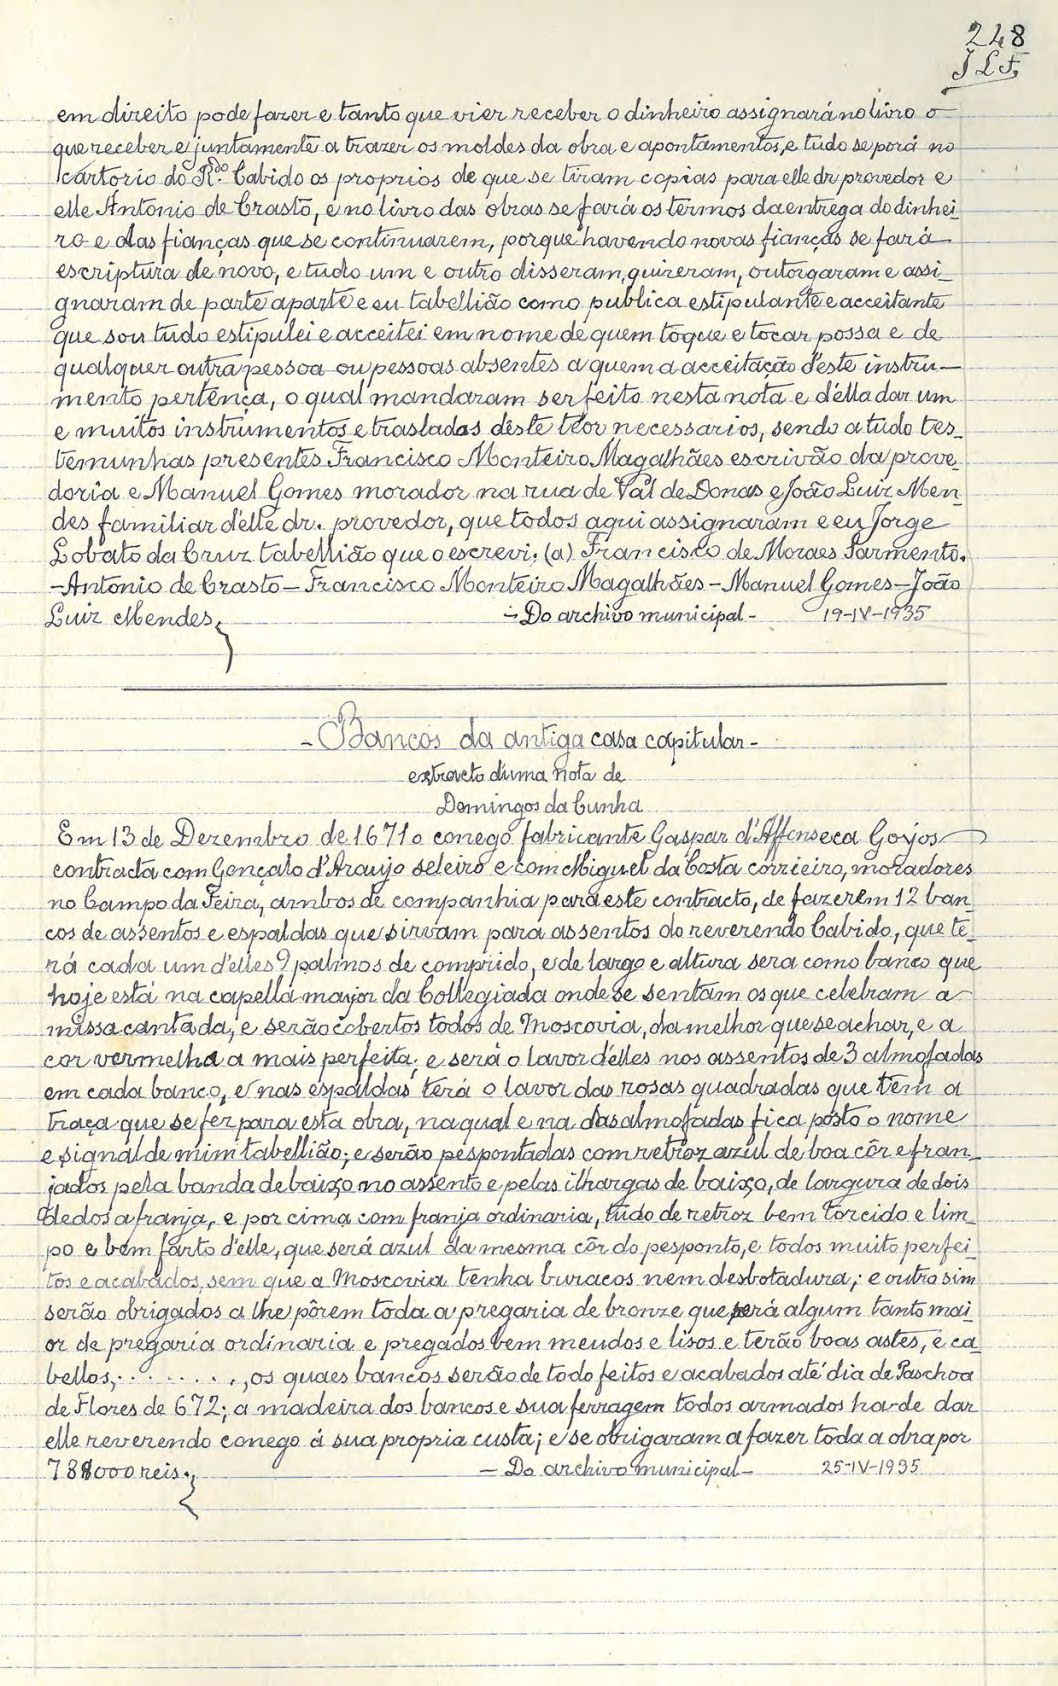 248
J L F.
em direito pode fazer e tanto que vier receber o dinheiro assignará no livro o
que receber e juntamente a trazer os moldes da obra e apontamentos, e tudo se porá no
cartorio do R.do Cabido os proprios de que se tiram copias para elle dr provedor e
elle Antonio de Crasto, e no livro das obras se fará os termos da entrega do dinhei-
ro e das fianças que se continuarem, porque havendo novas fianças se fará
escriptura de novo, e tudo um e outro disseram, quizeram, outorgaram e assi-
gnaram de parte a parte e eu tabellião como publica estipulante e acceitante
que sou tudo estipulei e acceitei em nome de quem toque e tocar possa e de
qualquer outra pessoa ou pessoas absentes a quem a acceitação d'este instru-
mento pertença, o qual mandaram ser feito nesta nota e d'ella dar um
e muitos instrumentos e traslados dèste teor necessarios, sendo a tudo tes-
temunhas presentes Francisco Monteiro Magalhães escrivão da prove-
doria e Manuel Gomes morador na rua de Val de Donas e João Luiz Men-
des familiar d'elle dr. provedor, que todos aqui assignaram e eu Jorge
Lobato da Cruz tabellião que o escrevi. (a) Francisco de Moraes Sarmento.
-Antonio de Crasto - Francisco Monteiro Magalhães - Manuel Gomes - João
Luiz Mendes, -Do archivo municipal- 19-IV-1935
- Bancos da antiga casa capitular -
extracto d'uma nota de
Domingos da Cunha
Em 13 de Dezembro de 1671 o conego fabricante Gaspar d'Affonseca Goyos
contracta com Gonçalo d'Araujo seleiro e com Miguel da Costa corrieiro, moradores
no Campo da Feira, ambos de companhia para este contracto, de fazerem 12 ban-
cos de assentos e espaldas que sirvam para assentos do reverendo Cabido, que te-
rá cada um d'elles 9 palmos de comprido, e de largo e altura sera como banco que
hoje está na capella mayor da Collegiada onde se sentam os que celebram a
missa cantada, e serão cobertos todos de Moscovia, da melhor que se achar, e a
cor vermelha a mais perfeita; e será o lavor d'elles nos assentos de 3 almofadas
em cada banco, e nas espaldas terá o lavor das rosas quadradas que tem a
traça que se fez para esta obra, na qual e na das almofadas fica pósto o nome
e signal de mim tabellião; e serão pespontadas com retroz azul de boa côr e fran-
jados pela banda de baixo no assento e pelas ilhargas de baixo, de largura de dois
dedos a franja, e por cima com franja ordinaria, tudo de retroz bem torcido e lim-
po e bem farto d'elle, que será azul da mesma côr do pesponto, e todos muito perfei-
tos e acabados, sem que a Moscovia tenha buracos nem desbotadura; e outro sim
serão obrigados a lhe pôrem toda a pregaria de bronze que será algum tanto mai-
or de pregaria ordinaria e pregados bem meudos e lisos e terão boas astes, e ca-
bellos, . . . . . . . ., os quaes bancos serão de todo feitos e acabados até dia de Paschoa
de Flores de 672; a madeira dos bancos e sua ferragem todos armados ha-de dar
elle reverendo conego á sua propria custa; e se obrigaram a fazer toda a obra por
78$000 reis. - Do archivo municipal - 25-IV-1935